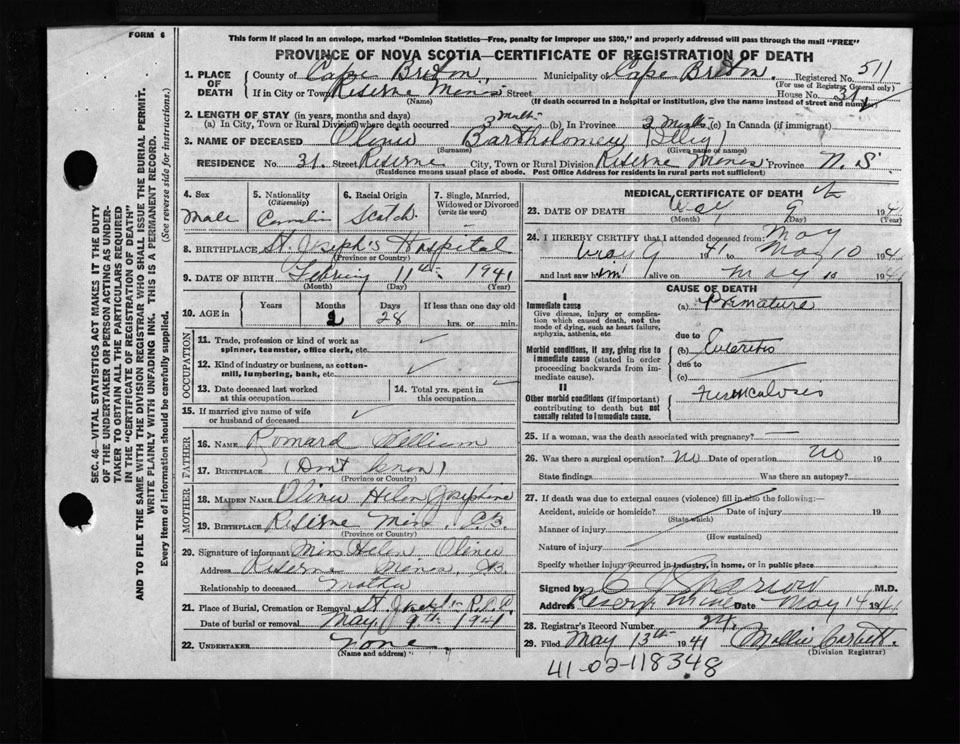 FORM 6
This form if placed in an envelope, marked "Dominion Statistics—Free, penalty for improper use $300," and properly addressed will pass through the mail "FREE"
PROVINCE OF NOVA SCOTIA—CERTIFICATE OF REGISTRATION OF DEATH
SEC. 46—VITAL STATISTICS ACT MAKES IT THE DUTY
OF THE UNDERTAKER OR PERSON ACTING AS UNDER-
TAKER TO OBTAIN ALL THE PARTICULARS REQUIRED
IN THE "CERTIFICATE OF REGISTRATION OF DEATH"
AND TO FILE THE SAME WITH THE DIVISION REGISTRAR WHO SHALL ISSUE THE BURIAL PERMIT.
WRITE PLAINLY WITH UNFADING INK. THIS IS A PERMANENT RECORD.
Every item of information should be carefully supplied. (See reverse side for instructions.)
1. PLACE OF DEATH County of Cape Breton, Municipality of Cape Breton. Registered No. 511
(For use of Registrar General only)
If in City or Town Reserve Mines Street House No. 31
(Name) (If death occurred in a hospital or institution, give the name instead of street and number)
2. LENGTH OF STAY (in years, months and days)
(a) In City, Town or Rural Division where death occurred (b) In Province (c) In Canada (if immigrant)
3. NAME OF DECEASED Bartholomew
(Surname) (Given name or names)
RESIDENCE No. 31. Street Reserve City, Town or Rural Division Reserve Mines Province N. S.
(Residence means usual place of abode. Post Office Address for residents in rural parts not sufficient)
4. Sex Male
5. Nationality (Citizenship)
6. Racial Origin Scotch
7. Single, Married, Widowed or Divorced (write the word)
8. BIRTHPLACE St. Joseph's Hospital
(Province or Country)
9. DATE OF BIRTH 11th 1941
(Month) (Day) (Year)
10. AGE in Years Months 2 Days 28 If less than one day old
hrs. or min.
OCCUPATION
11. Trade, profession or kind of work as spinner, teamster, office clerk, etc.
12. Kind of industry or business, as cotton-mill, lumbering, bank, etc.
13. Date deceased last worked at this occupation
14. Total yrs. spent in this occupation
15. If married give name of wife or husband of deceased
FATHER
16. NAME William
17. BIRTHPLACE (Don't know)
(Province or Country)
MOTHER
18. MAIDEN NAME Helen Josephine
19. BIRTHPLACE Reserve Mines. C.B.
(Province or Country)
20. Signature of informant Miss Helen
Address Reserve Mines, C.B.
Relationship to deceased Mother
21. Place of Burial, Cremation or Removal St. Joseph's
Date of burial or removal May 9th 1941
22. UNDERTAKER none
(Name and address)
MEDICAL CERTIFICATE OF DEATH
23. DATE OF DEATH May 9 1941
(Month) (Day) (Year)
24. I HEREBY CERTIFY that I attended deceased from: May
1941 to May 10 1941
and last saw him alive on May 10 1941
CAUSE OF DEATH
I
Immediate cause
Give disease, injury or complication which caused death, not the mode of dying, such as heart failure, asphyxia, asthenia, etc
(a) Premature
due to
Morbid conditions, if any, giving rise to immediate cause (stated in order proceeding backwards from immediate cause).
(b) Enteritis
due to
(c)
II
Other morbid conditions (if important) contributing to death but not causally related to immediate cause.
Furunculosis
25. If a woman, was the death associated with pregnancy? —
26. Was there a surgical operation? No Date of operation No 19
State findings Was there an autopsy?
27. If death was due to external causes (violence) fill in also the following:—
Accident, suicide or homicide? Date of injury 19
(State which)
Manner of injury
(How sustained)
Nature of injury
Specify whether injury occurred in industry, in home, or in public place
Signed by M.D.
Address Reserve Mines Date May 14 1941
28. Registrar's Record Number 24.
29. Filed May 13th 1941 Mollie
(Division Registrar)
41-02-118348